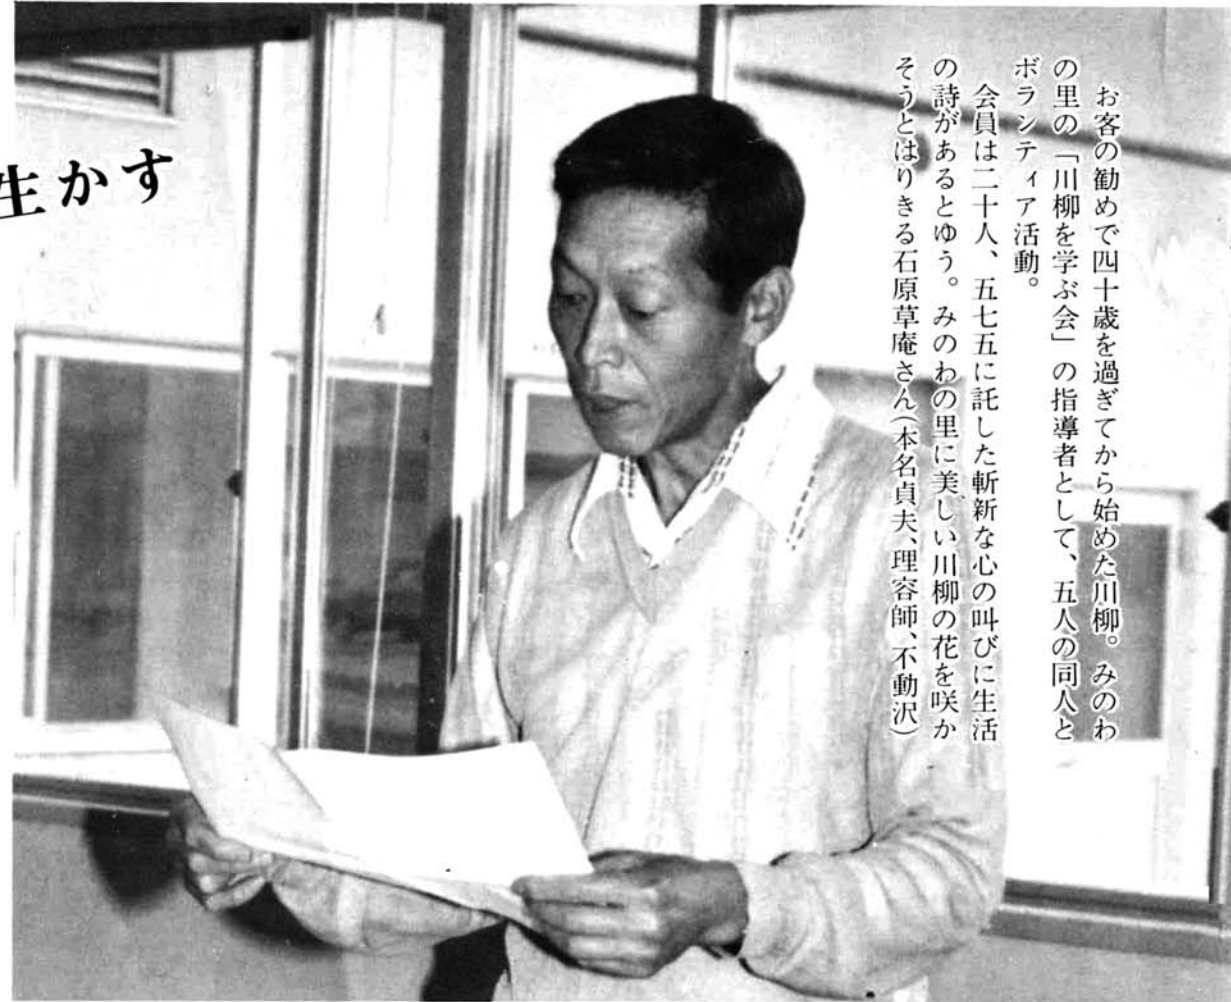 お客の勧めで四十歳を過ぎてから始めた川柳。みのわ
の里の「川柳を学ぶ会」の指導者として、五人の同人と
ボランティア活動。
会員は二十人、五七五に託した斬新な心の叫びに生活
の詩があるとゆう。みのわの里に美しい川柳の花を咲か
そうとはりきる石原草庵さん(本名貞夫、理容師、不動沢)
生かす